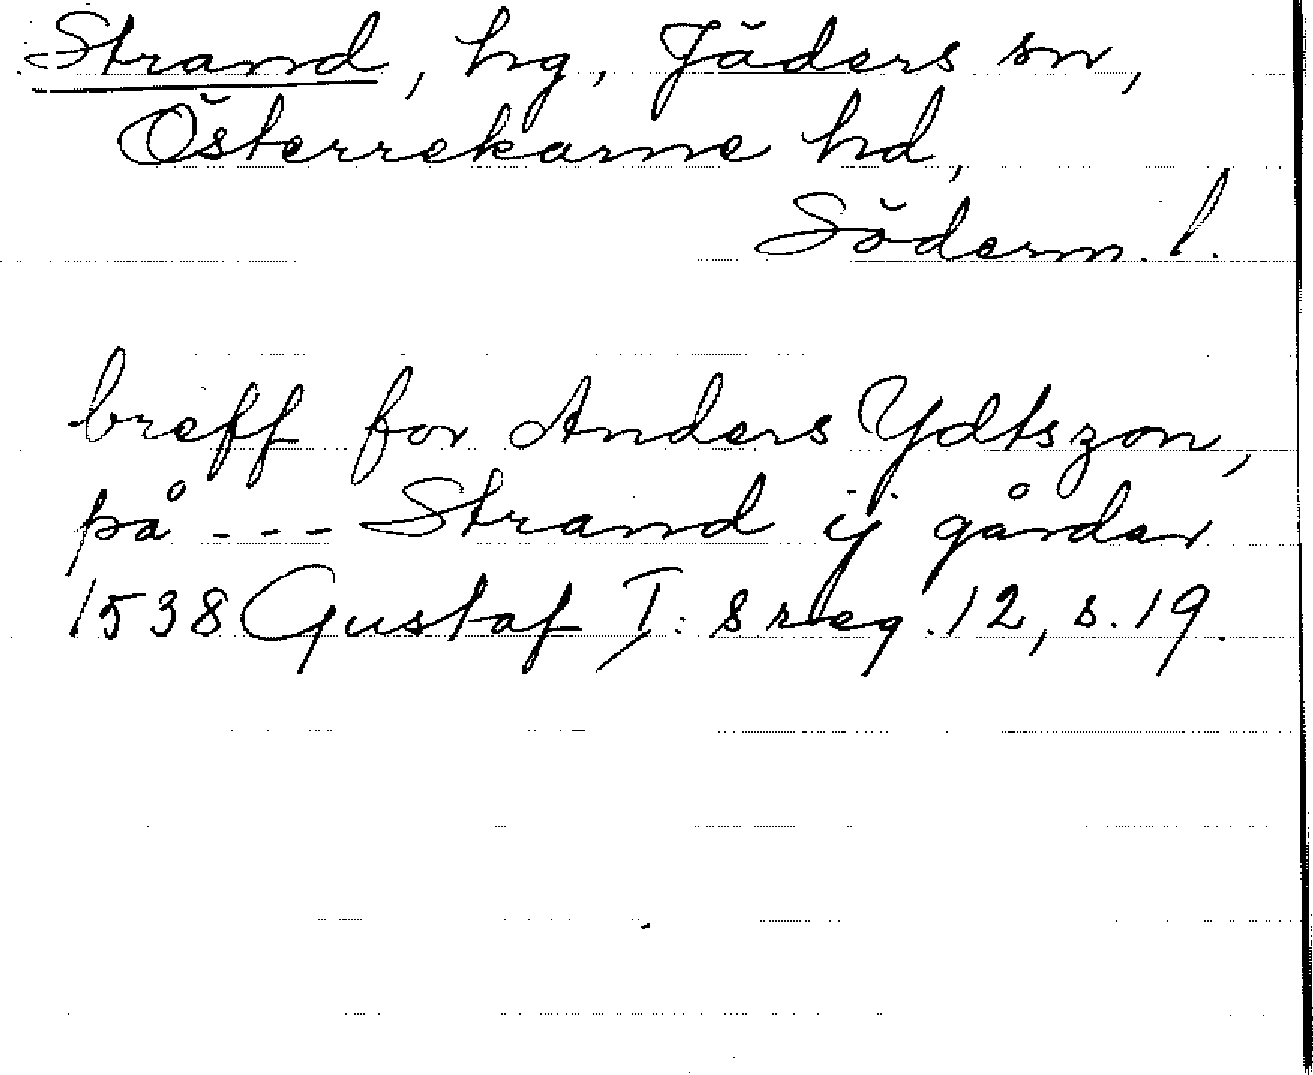 Strand, hg, Jäders sn,
Österrekarne hd,
Söderm. l.
breff for Anders Ydtszon,
på --- Strand ij gårdar
1538 Gustaf I:s reg. 12, s. 19.